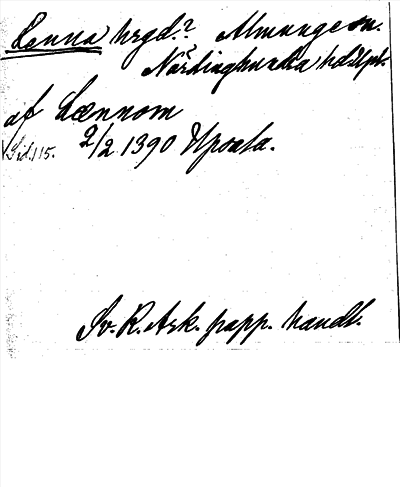 Lenna hrgd.? Almunge sn.
Närdinghundra hd. Upl.
af Lænnom
Sid. 115. 2/2 1390 Upsala.
Sv. R. Ark. papp. handl.